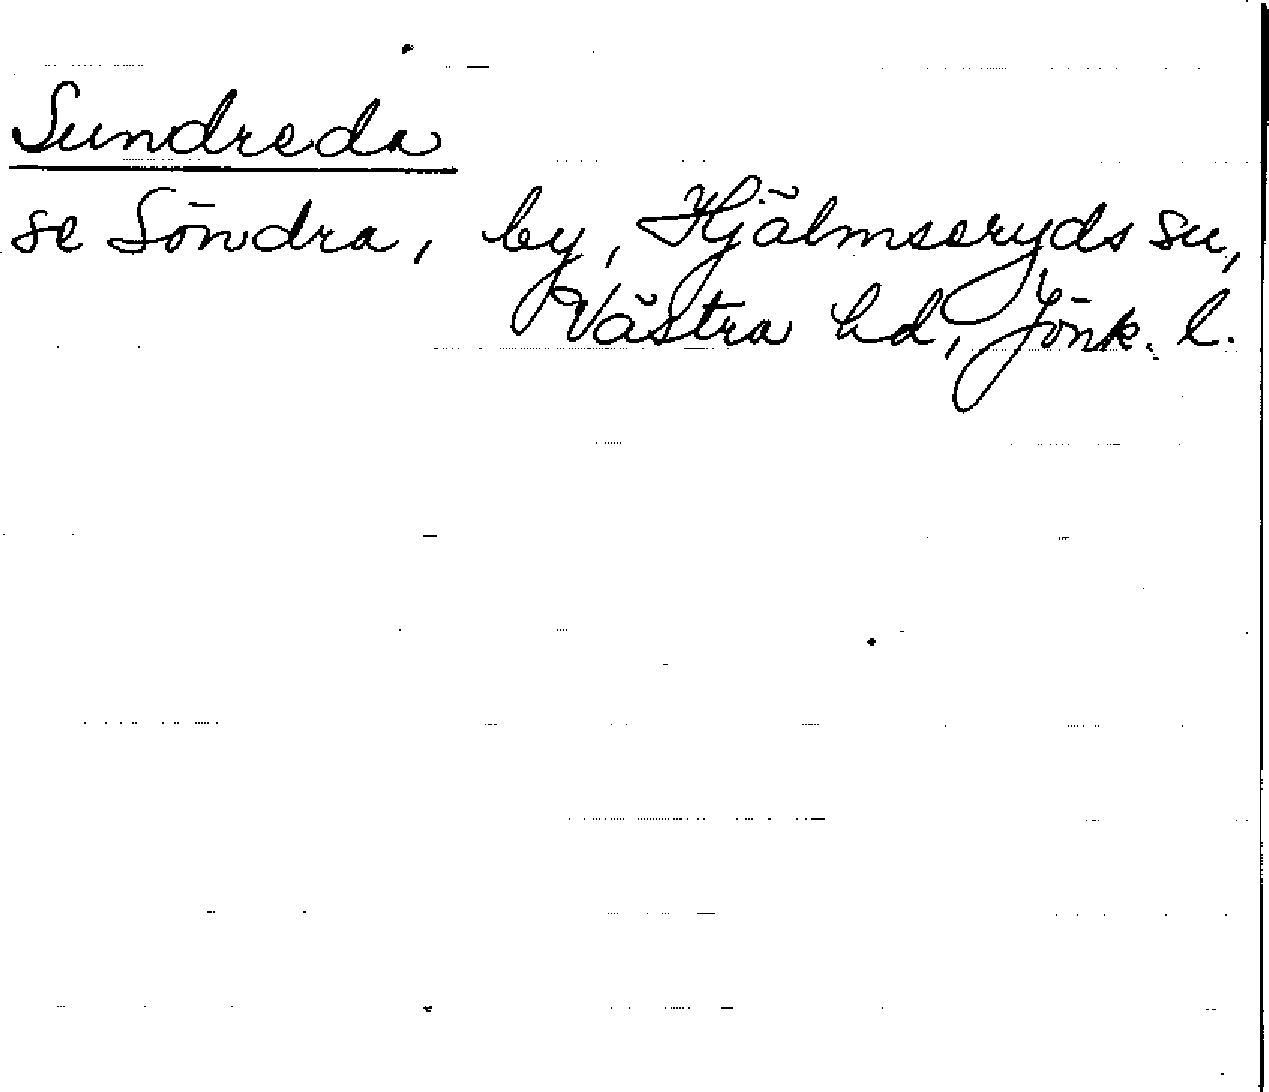 Sundreda
se Söndra, by, Hjälmseryds sn,
Västra hd, Jönk. l.